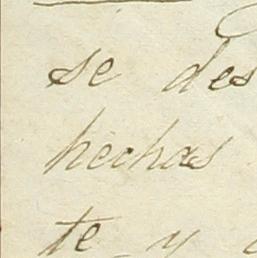 se des
hechas
te y